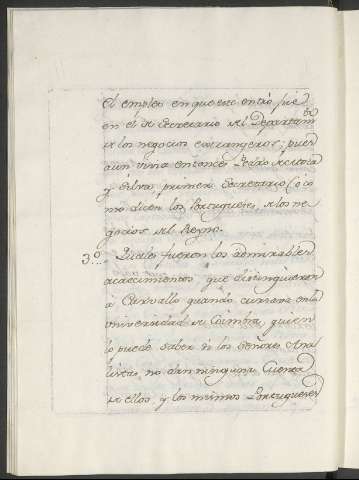 el empleo en que este entró fué
en el de Secretario del Departam.to
de los negocios extrangeros; pues
aun vivia entonces Pedro de Mota
y Silva, primer Secretario (ó co
mo dicen los Portugueses, de los ne
gocios del Reyno.
3.º Quales fueron los admirables
acaecimientos, que distinguieron
á Carvallo quando cursava en la
Universidad de Coimbra, quien
lo puede saber si los Señores Ana
listas no dan ninguna Cuenta
de ellos, y los mismos Portugueses